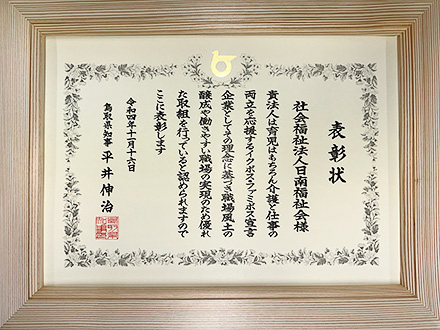 表彰状
社会福祉法人日南福祉会様
貴法人は育児はもちろん介護と仕事の
両立を応援するイクボスファミボス宣言
企業としてその理念に基づき職場風土の
醸成や働きやすい職場の実現のため優れ
た取組を行っていると認められますので
ここに表彰します
令和四年十一月十六日
鳥取県知事 平井伸治